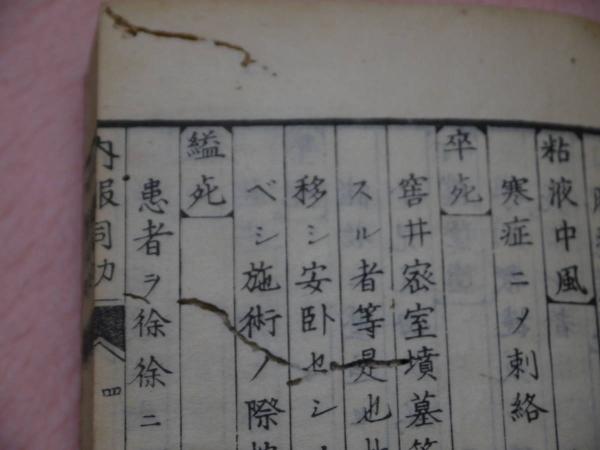 粘液中風
寒症ニメ刺絡
卒死
窖井密室墳墓
スル者等是也
移シ安卧セシ
ベシ施術ノ際
縊死
患者ヲ徐徐ニ
内服同功
四